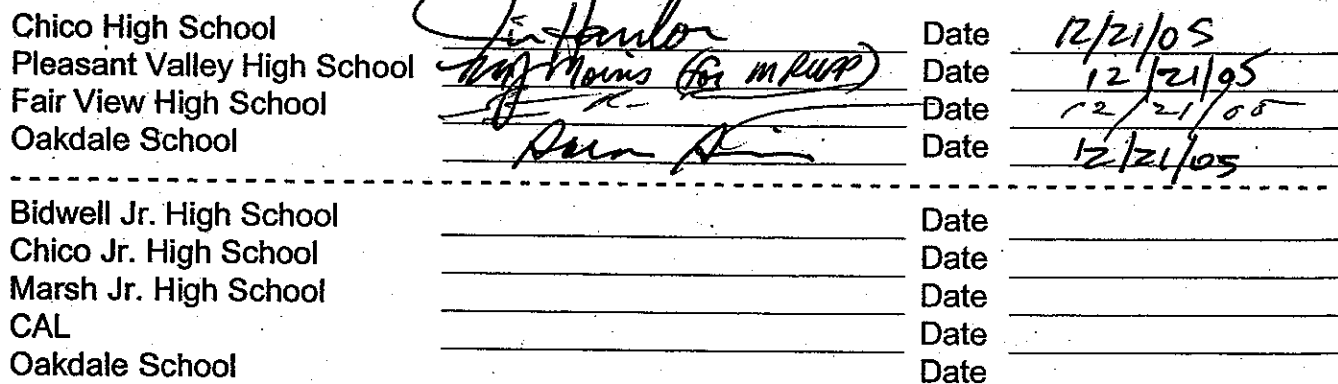 Chico High School Jim Hanlon Date 12/21/05
Pleasant Valley High School Morris (for Date 12/21/05
Fair View High School Date 12/21/05
Oakdale School Date 12/21/05
Bidwell Jr. High School Date
Chico Jr. High School Date
Marsh Jr. High School Date
CAL Date
Oakdale School Date